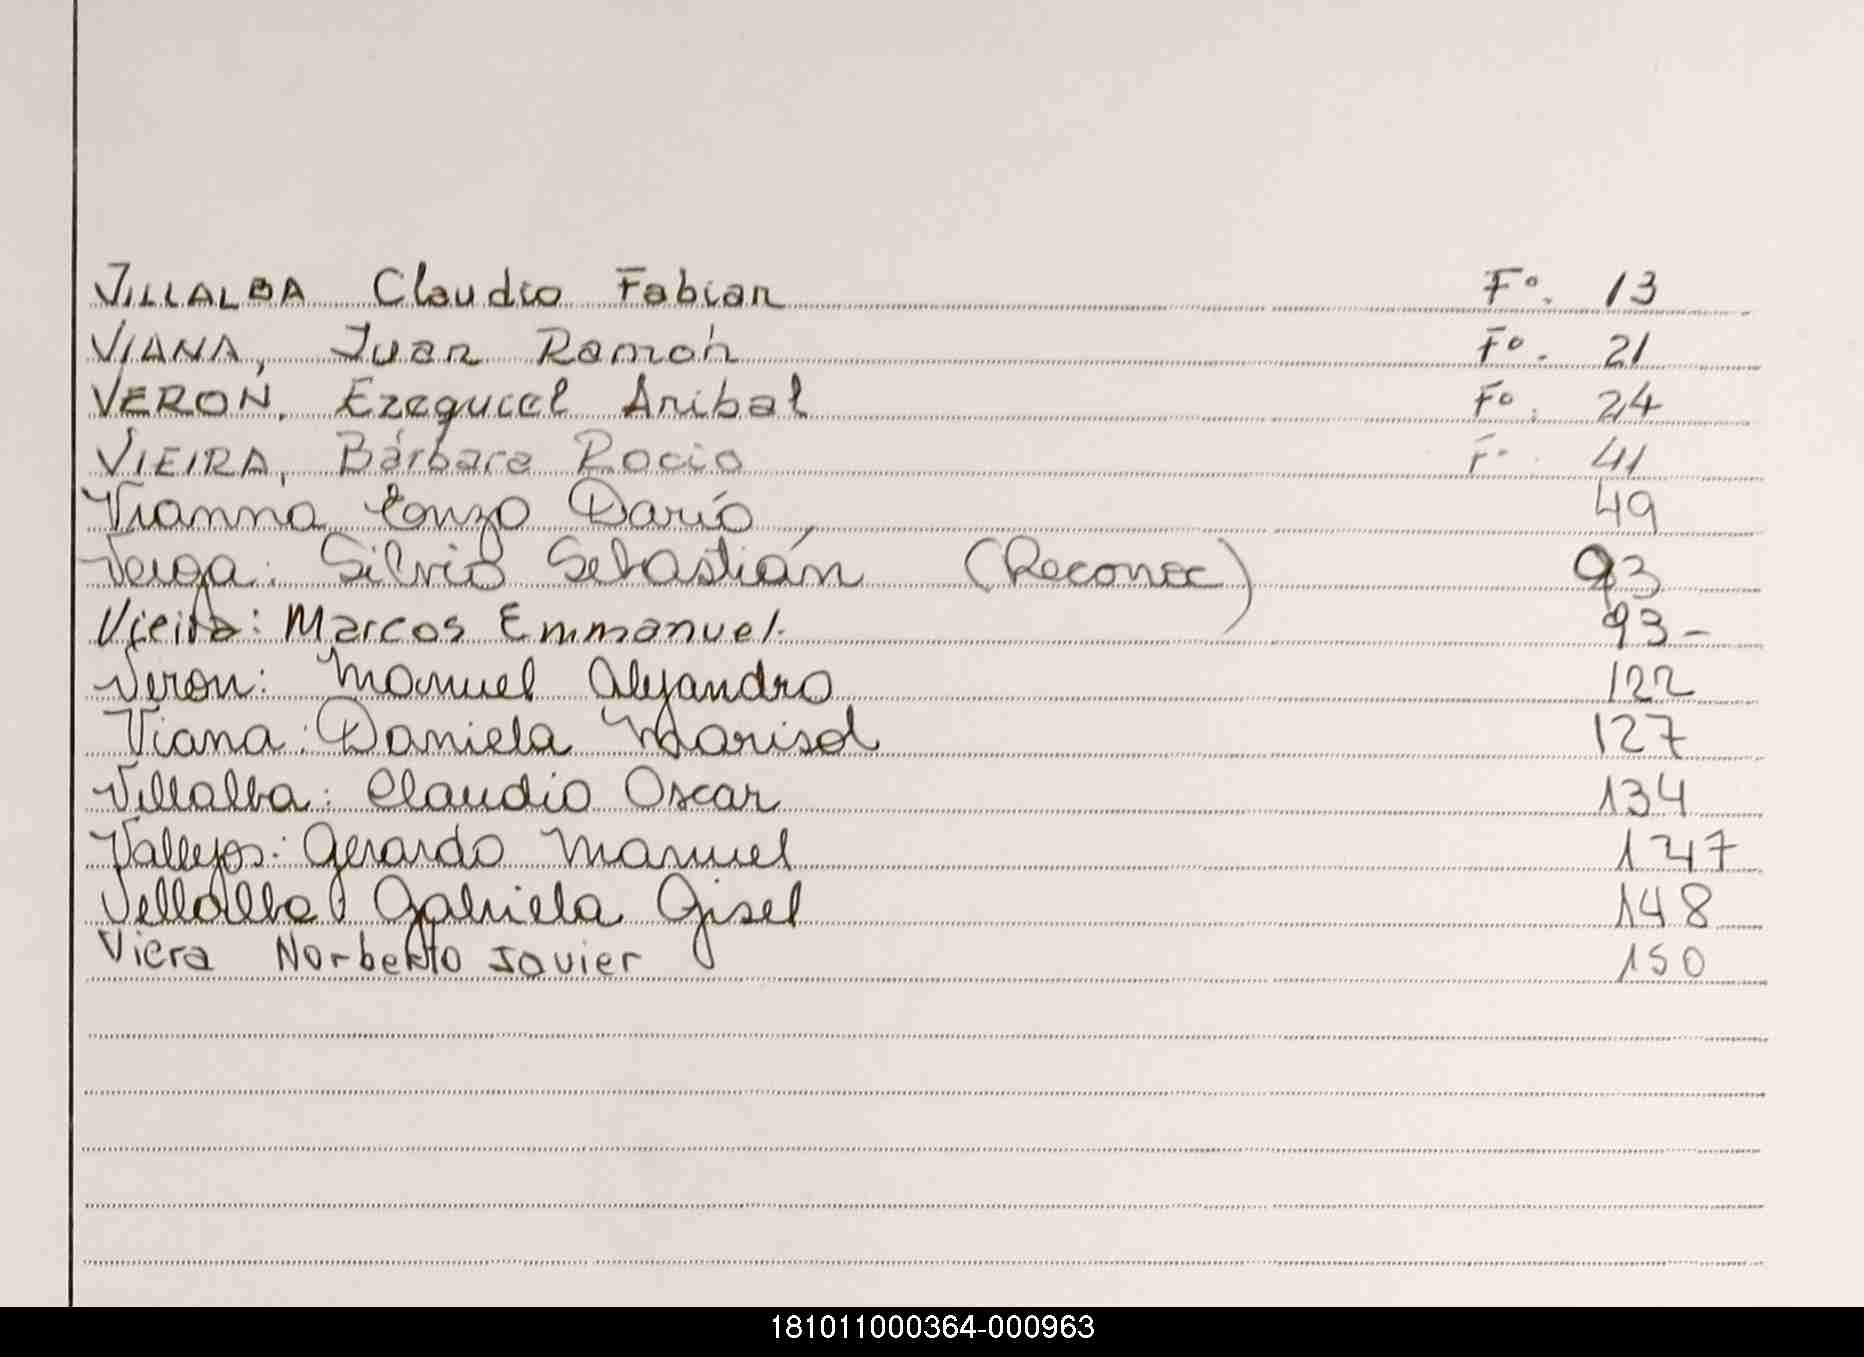 VILLALBA Claudio Fabian Fº. 13
VIANA, Juan Ramón Fº. 21
VERON, Ezequiel Anibal Fº. 24
VIEIRA, Bárbara Rocio Fº. 41
Vianna Enzo Darío, 49
Veiga: Silvio Sebastián (Reconoc) 93
Vieira: Marcos Emmanuel. 93-
Veron: Manuel Alejandro 122
Viana: Daniela Marisol 127
Villalba: Claudio Oscar 134
Vallejos: Gerardo Manuel 147
Villalba Gabriela Gisel 148
Viera Norberto Javier 150
181011000364-000963